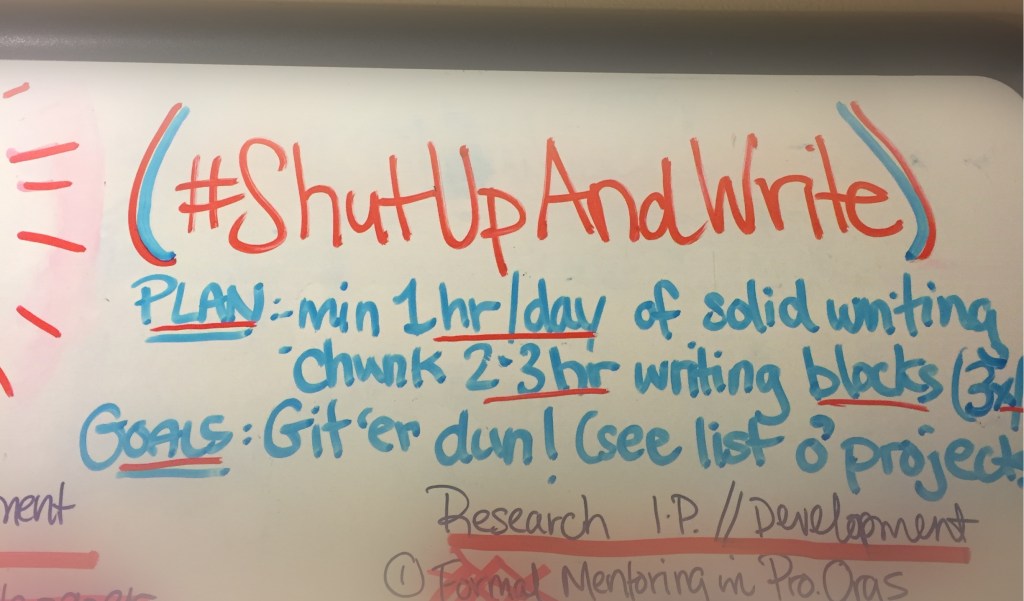 (#ShutUpAndWrite)
PLAN: - min 1 hr/day of solid writing
- chunk 2-3 hr writing blocks (3x/
GOALS: Git 'er dun! (see list o' projects
ment
Research I.P. // Development
① Formal Mentoring in Pro. Orgs